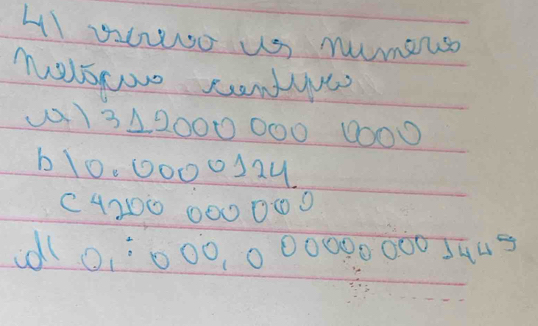 4) escreva os números
Notação científica
a) 312000 000 0000
b) 0.0000124
c 4200 000 000
d) 0,: 000,0 00000 000 1449